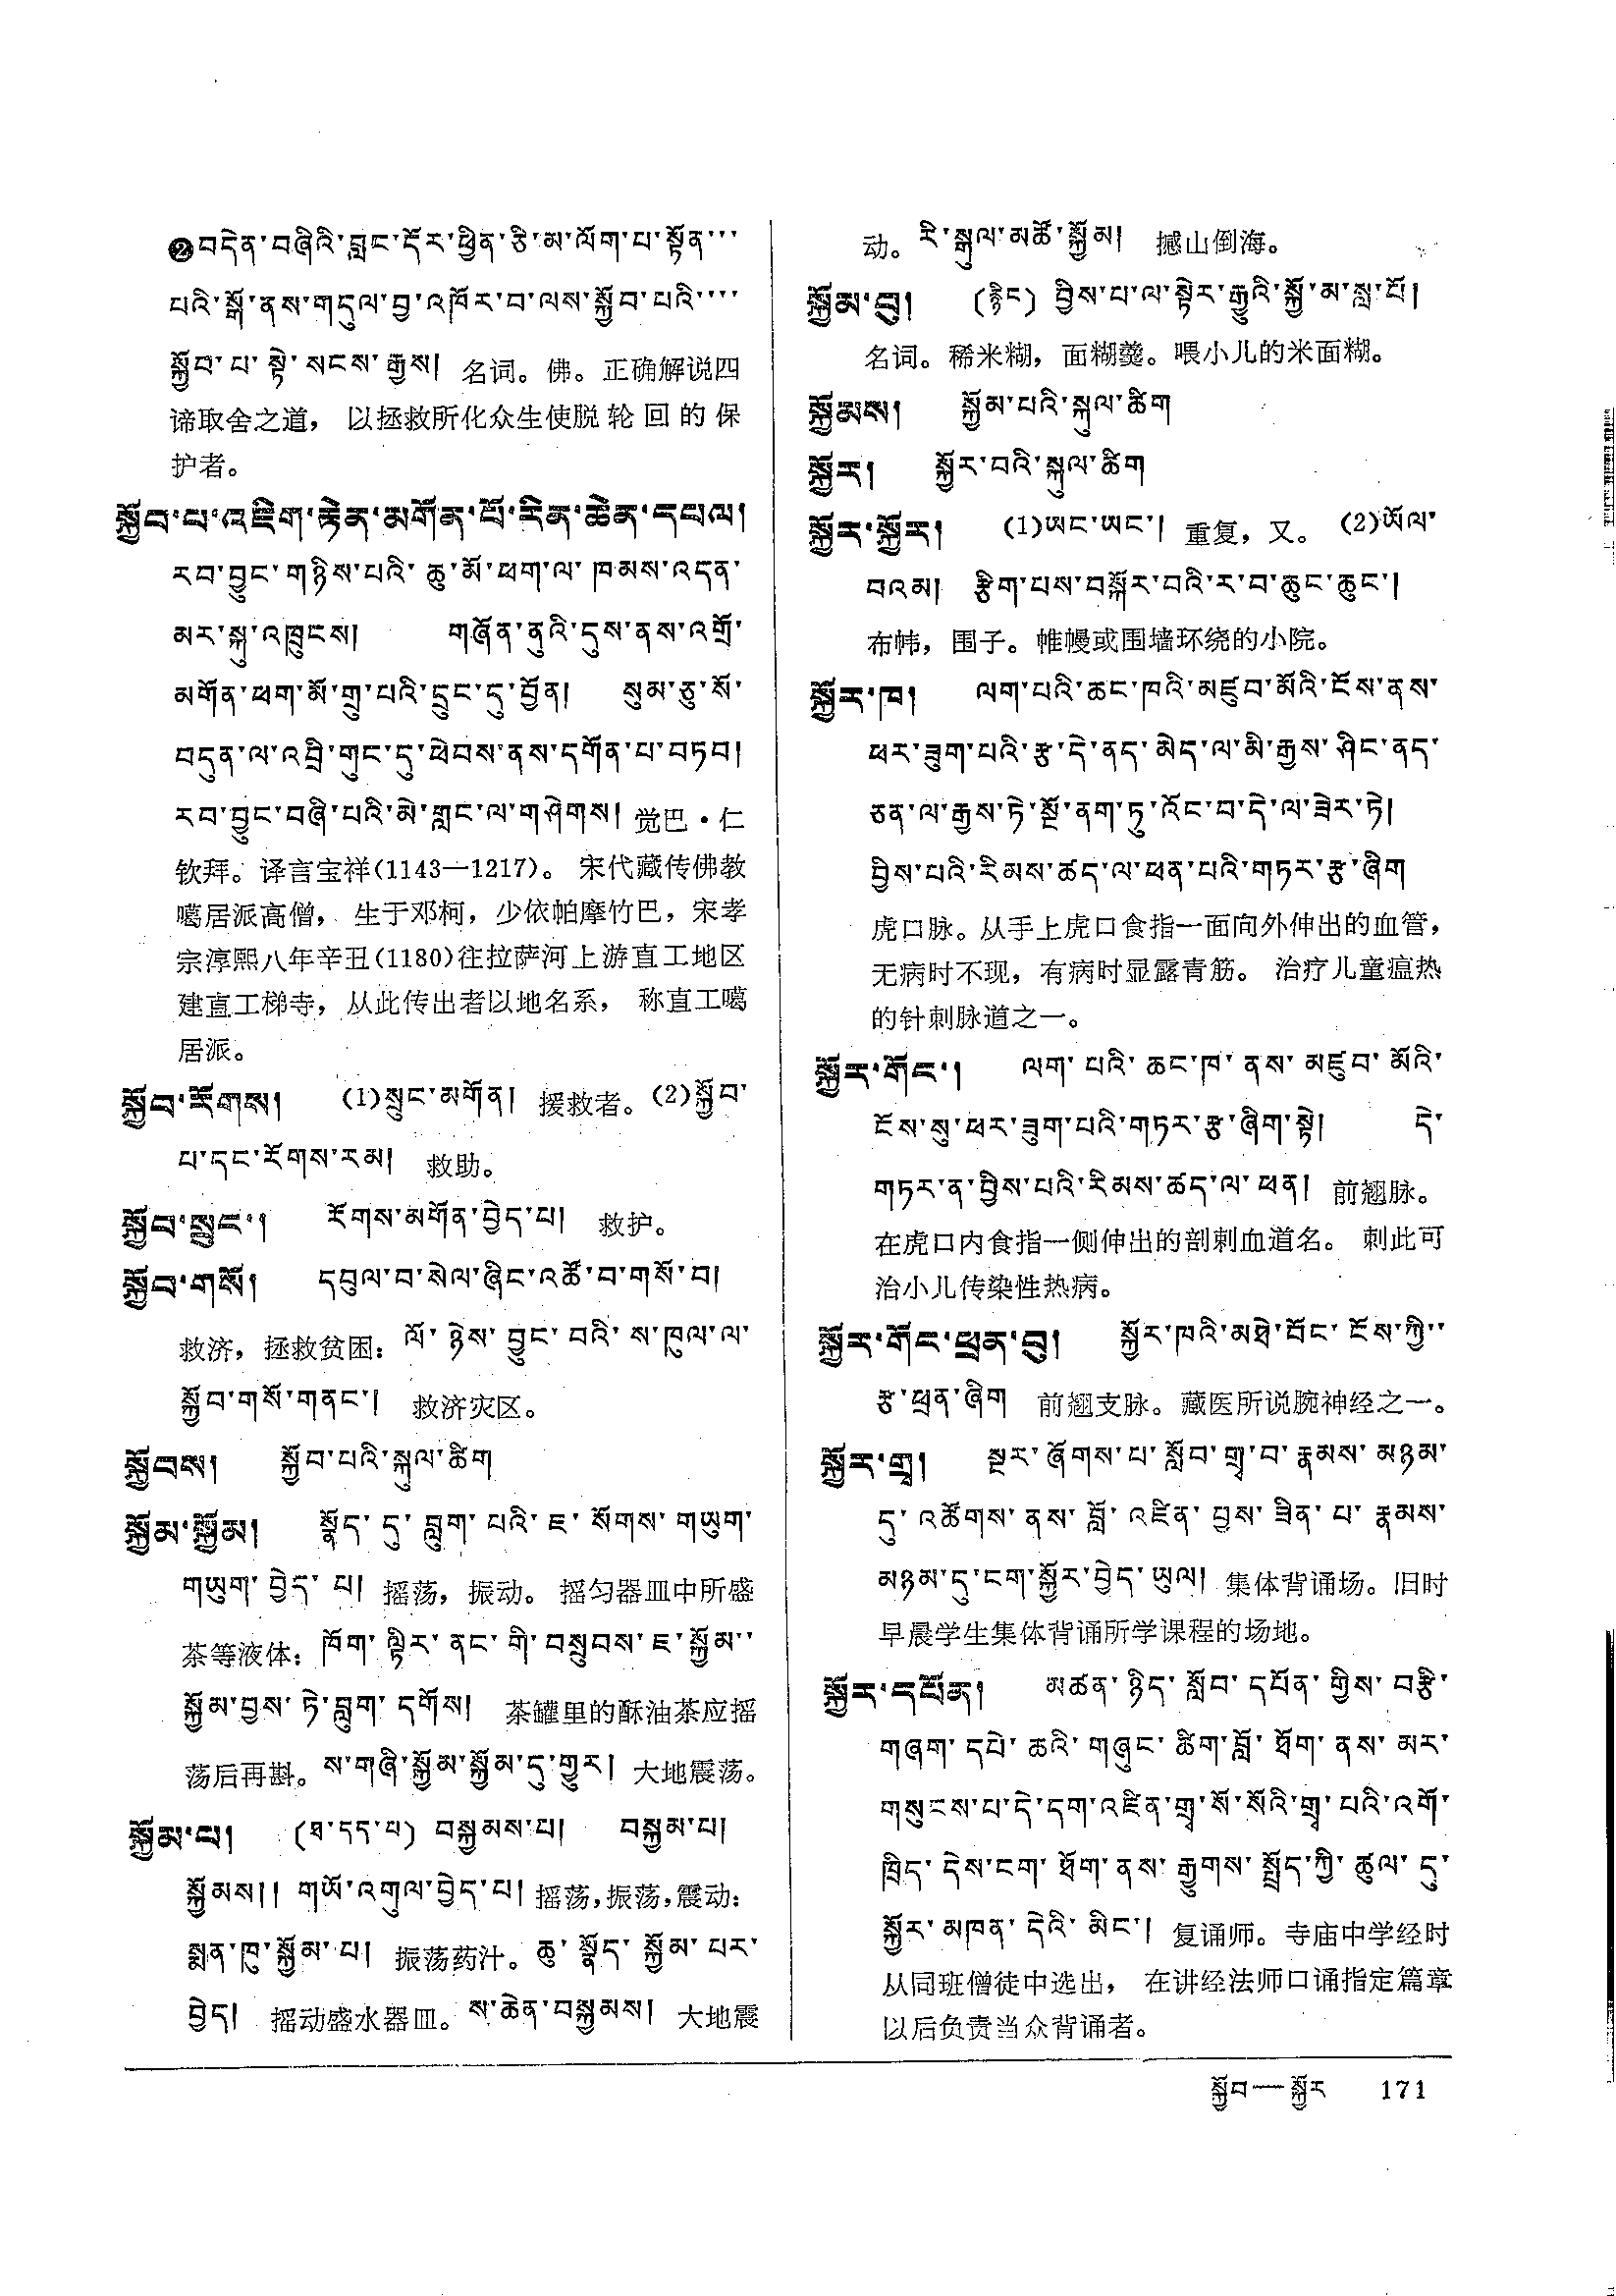 ❷བདེན་བཞིའི་བླང་དོར་ཕྱིན་ཅི་མ་ལོག་པ་སྟོན་་་
པའི་སྒོ་ནས་གདུལ་བྱ་འཁོར་བ་ལས་སྐྱོབ་པའི་་་་
སྐྱོབ་པ་སྟེ་སངས་རྒྱས། 名词。佛。正确解说四
谛取舍之道，以拯救所化众生使脱轮回的保
护者。
སྐྱོབ་པ་འཇིག་རྟེན་མགོན་པོ་རིན་ཆེན་དཔལ།
རབ་བྱུང་གཉིས་པའི་ཆུ་མོ་ཕག་ལ་ཁམས་འདན་
མར་སྐུ་འཁྲུངས། གཞོན་ནུའི་དུས་ནས་འགྲོ་
མགོན་ཕག་མོ་གྲུ་པའི་དྲུང་དུ་བྱོན། སུམ་ཅུ་སོ་
བདུན་ལ་འབྲི་གུང་དུ་ཕེབས་ནས་དགོན་པ་བཏབ།
རབ་བྱུང་བཞི་པའི་མེ་གླང་ལ་གཤེགས། 觉巴·仁
钦拜。译言宝祥(1143—1217)。宋代藏传佛教
噶居派高僧，生于邓柯，少依帕摩竹巴，宋孝
宗淳熙八年辛丑(1180)往拉萨河上游直工地区
建直工梯寺，从此传出者以地名系，称直工噶
居派。
སྐྱོབ་རོགས། (1)སྲུང་མགོན། 援救者。(2)སྐྱོབ་
པ་དང་རོགས་རམ། 救助。
སྐྱོབ་སྲུང་། རོགས་མགོན་བྱེད་པ། 救护。
སྐྱོབ་གསོ། དབུལ་བ་སེལ་ཞིང་འཚོ་བ་གསོ་བ།
救济，拯救贫困：ལོ་ཉེས་བྱུང་བའི་ས་ཁུལ་ལ་
སྐྱོབ་གསོ་གནང་། 救济灾区。
སྐྱོབས། སྐྱོབ་པའི་སྐུལ་ཚིག
སྐྱོམ་སྐྱོམ། སྣོད་དུ་བླུག་པའི་ཇ་སོགས་གཡུག་
གཡུག་བྱེད་པ། 摇荡，振动。摇匀器皿中所盛
茶等液体：ཁོག་ལྟིར་ནང་གི་བསྲུབས་ཇ་སྐྱོམ་་
སྐྱོམ་བྱས་ཏེ་བླུག་དགོས། 茶罐里的酥油茶应摇
荡后再斟。ས་གཞི་སྐྱོམ་སྐྱོམ་དུ་གྱུར། 大地震荡。
སྐྱོམ་པ། (ཐ་དད་པ) བསྐྱམས་པ། བསྐྱམ་པ།
སྐྱོམས།། གཡོ་འགུལ་བྱེད་པ། 摇荡，振荡，震动：
སྨན་ཁུ་སྐྱོམ་པ། 振荡药汁。ཆུ་སྣོད་སྐྱོམ་པར་
བྱེད། 摇动盛水器皿。ས་ཆེན་བསྐྱམས། 大地震
动。རི་སྒུལ་མཚོ་སྐྱོམ། 撼山倒海。
སྐྱོམ་བུ། (རྙིང) བྱིས་པ་ལ་སྟེར་རྒྱུའི་སྐྱོ་མ་སླ་པོ།
名词。稀米糊，面糊羹。喂小儿的米面糊。
སྐྱོམས། སྐྱོམ་པའི་སྐུལ་ཚིག
སྐྱོར། སྐྱོར་བའི་སྐུལ་ཚིག
སྐྱོར་སྐྱོར། (1)ཨང་ཨང་། 重复，又。(2)ཡོལ་
བའམ། རྩིག་པས་བསྐོར་བའི་ར་བ་ཆུང་ཆུང་།
布帏，围子。帷幔或围墙环绕的小院。
སྐྱོར་ཁ། ལག་པའི་ཆང་ཁའི་མཛུབ་མོའི་ངོས་ནས་
ཕར་ཟུག་པའི་རྩ་དེ་ནད་མེད་ལ་མི་རྒྱས་ཤིང་ནད་
ཅན་ལ་རྒྱས་ཏེ་སྔོ་ནག་ཏུ་འོང་བ་དེ་ལ་ཟེར་ཏེ།
བྱིས་པའི་རིམས་ཚད་ལ་ཕན་པའི་གཏར་རྩ་ཞིག
虎口脉。从手上虎口食指一面向外伸出的血管，
无病时不现，有病时显露青筋。治疗儿童瘟热
的针刺脉道之一。
སྐྱོར་གོང་། ལག་པའི་ཆང་ཁ་ནས་མཛུབ་མོའི་
ངོས་སུ་ཕར་ཟུག་པའི་གཏར་རྩ་ཞིག་སྟེ། དེ་
གཏར་ན་བྱིས་པའི་རིམས་ཚད་ལ་ཕན། 前翘脉。
在虎口内食指一侧伸出的剖刺血道名。刺此可
治小儿传染性热病。
སྐྱོར་གོང་ཕྲན་བུ། སྐྱོར་ཁའི་མཐེ་བོང་ངོས་ཀྱི་་
རྩ་ཕྲན་ཞིག 前翘支脉。藏医所说腕神经之一。
སྐྱོར་གྲྭ། སྔར་ཞོགས་པ་སློབ་གྲྭ་བ་རྣམས་མཉམ་
དུ་འཚོགས་ནས་བློ་འཛིན་བྱས་ཟིན་པ་རྣམས་
མཉམ་དུ་ངག་སྐྱོར་བྱེད་ཡུལ། 集体背诵场。旧时
早晨学生集体背诵所学课程的场地。
སྐྱོར་དཔོན། མཚན་ཉིད་སློབ་དཔོན་གྱིས་བརྩི་
གཞག་དཔེ་ཆའི་གཞུང་ཚིག་བློ་ཐོག་ནས་མར་
གསུངས་པ་དེ་དག་འཛིན་གྲྭ་སོ་སོའི་གྲྭ་པའི་འགོ་
ཁྲིད་དེས་ངག་ཐོག་ནས་རྒྱུགས་སྤྲོད་ཀྱི་ཚུལ་དུ་
སྐྱོར་མཁན་དེའི་མིང་། 复诵师。寺庙中学经时
从同班僧徒中选出，在讲经法师口诵指定篇章
以后负责当众背诵者。
སྐྱོབ—སྐྱོར 171